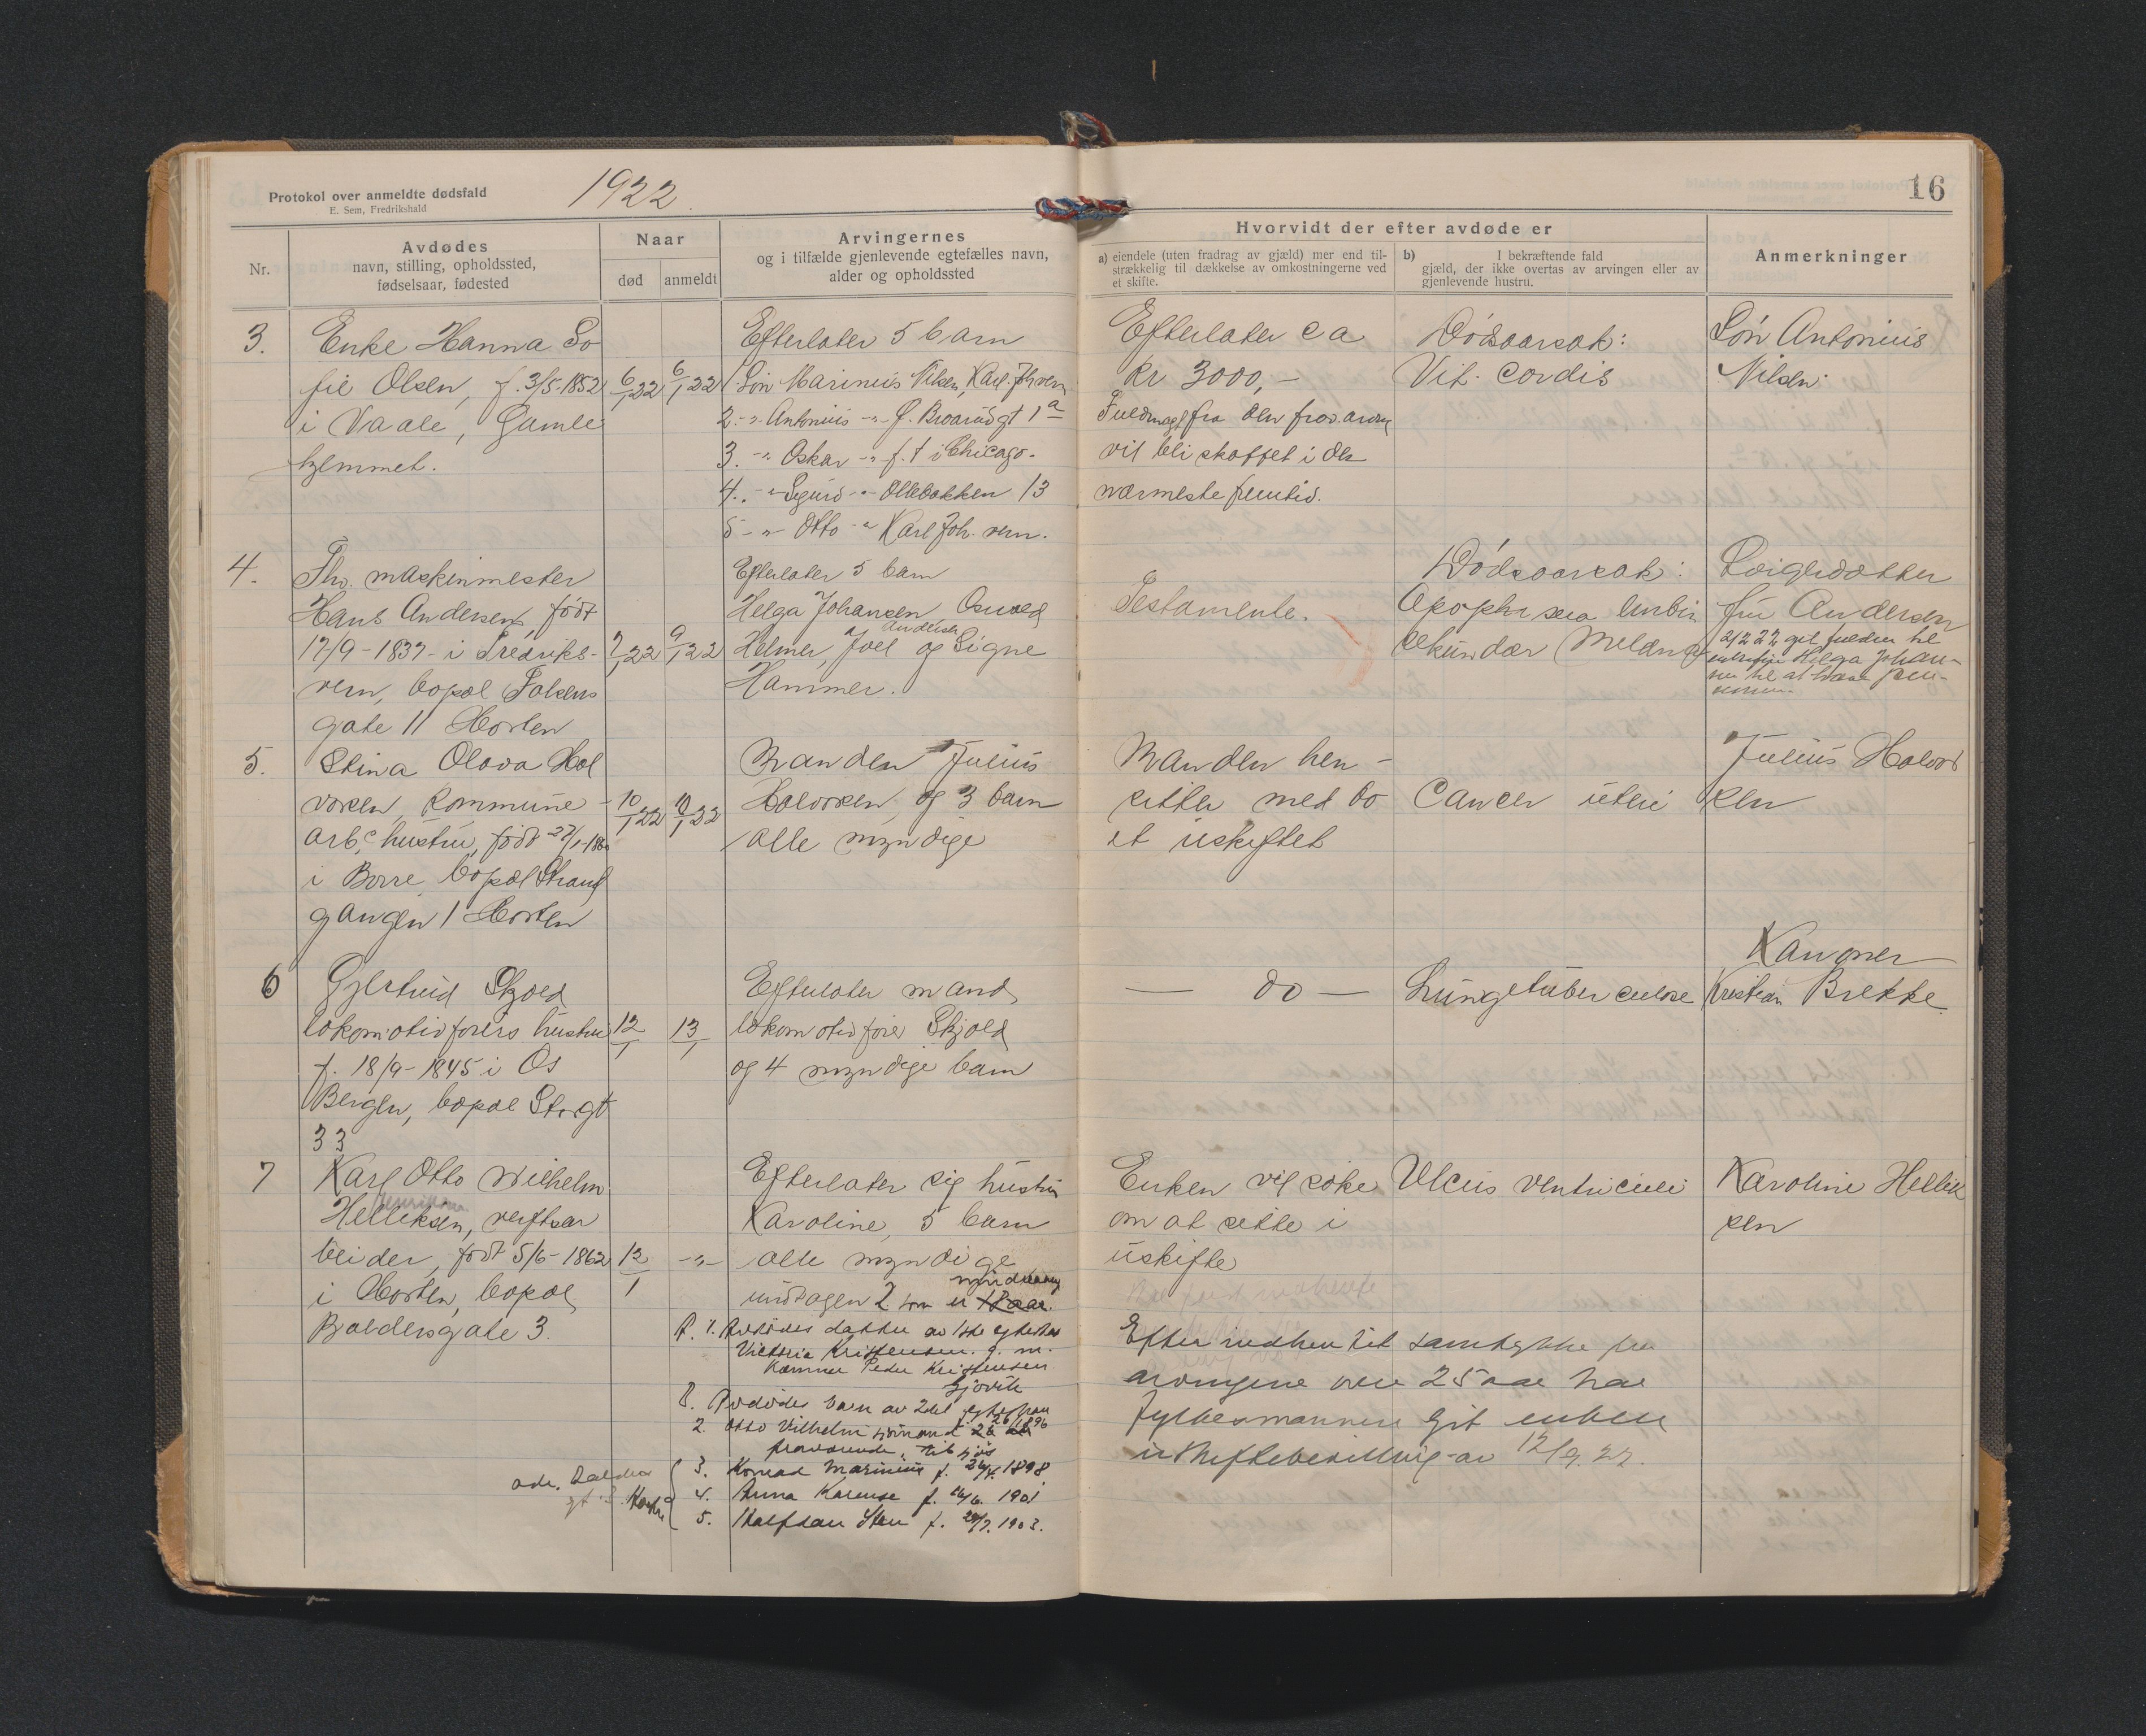 Protokol over anmeldte dødsfald
E. Sem, Fredrikshald
1922.
16
Nr.
Avdødes
navn, stilling, opholdssted,
fødselsaar, fødested
Naar
død
anmeldt
Arvingernes
og i tilfælde gjenlevende egtefælles navn,
alder og opholdssted
Hvorvidt der efter avdøde er
a) eiendele (uten fradrag av gjæld) mer end til-
strækkelig til dækkelse av omkostningerne ved
et skifte.
b) I bekræftende fald
gjæld, der ikke overtas av arvingen eller av
gjenlevende hustru.
Anmerkninger
3.
Enke Hanna So
fie Olsen, f. 3/5-1852
i Vaale, Gamle
hjemmet.
6/1 22
6/1 22
Efterlater 5 barn
1. Søn Marinius Nilsen, Karl Joh. vern
2. -"- Antonius -"- f. Broarnsgt 1a
3. -"- Oskar -"- f. t i Chicago.
4. -"- Sigurd -"- Ollebakken 13
5 -"- Otto -"- Karl Joh. vern.
Efterlater ca
kr 3000,-
Fuldmagt fra den frav. arving
vil bli skaffet i den
nærmeste fremtid.
Dødsaarsak:
Vit. cordis
Søn Antonius
Nilsen.
4.
Fhv. maskinmester
Hans Andersen, født
17/9-1837- i Fredriks-
vern, bopæl Falsens
gate 11 Horten
7/1 22
9/1 22
Efterlater 5 barn
Helga Johansen, Osvald
Andersen
Helmer, Joel og Signe
Hammer.
Testamente.
Dødsaarsak:
sekundær
Svigerdatter
fru Andersen
2/2 22 git fuldm til
Helga Johan-
sen til at hæve pen-
5.
Stina Olava Hal
vorsen, kommune-
arb.s hustru, født 27/1-186
i Borre, bopæl Strand
gangen 1 Horten
10/1 22
10/1 22
Manden Julius
Halvorsen, og 3 barn
alle myndige
Manden hen-
sitter med bo
et uskiftet
Cancer uteri
Julius Halvor
sen
6
Gjertrud Skjold
lokomotivførers hustru
f. 18/9-1845 i Os
Bergen, bopæl Storgt
33
12/1
13/1
Efterlater mand,
lokomotivfører Skjold
og 4 myndige barn
— do —
Lungetuberculose
Kanoner
Kristian Brekke.
7
Karl Otto Wilhelm
Henriksen
Helliksen, verftsar
beider, født 5/6-1862
i Horten, bopæl
Baldersgate 3.
12/1
-"-
Efterlater sig hustru
Karoline, 5 barn
alle myndige
undtagen 2 som er 18 aar.
A. 1. Avdødes datter av 1ste egteskap
Victoria Kristensen. g. m.
Peder Kristensen
Gjøvik
B. Avdødes barn av 2det egteskap
2. Otto Vilhelm sjømand 26 1896
fraværende, til sjøs
3. Konrad Marinius f. 26/4. 1898
4. Anna Karense f. 16/6. 1901
5. Halfdan Sten f. 29/7. 1903.
adr. Balders
gt. 3. Horten
Enken vil søke
om at sitte i
uskifte
Efter indhentet samtykke fra
arvingene over 25 aar har
fylkesmannen git enken
uskiftebevilling av 12/9. 22.
Ulcus ventriculi
Karoline Hellik
sen